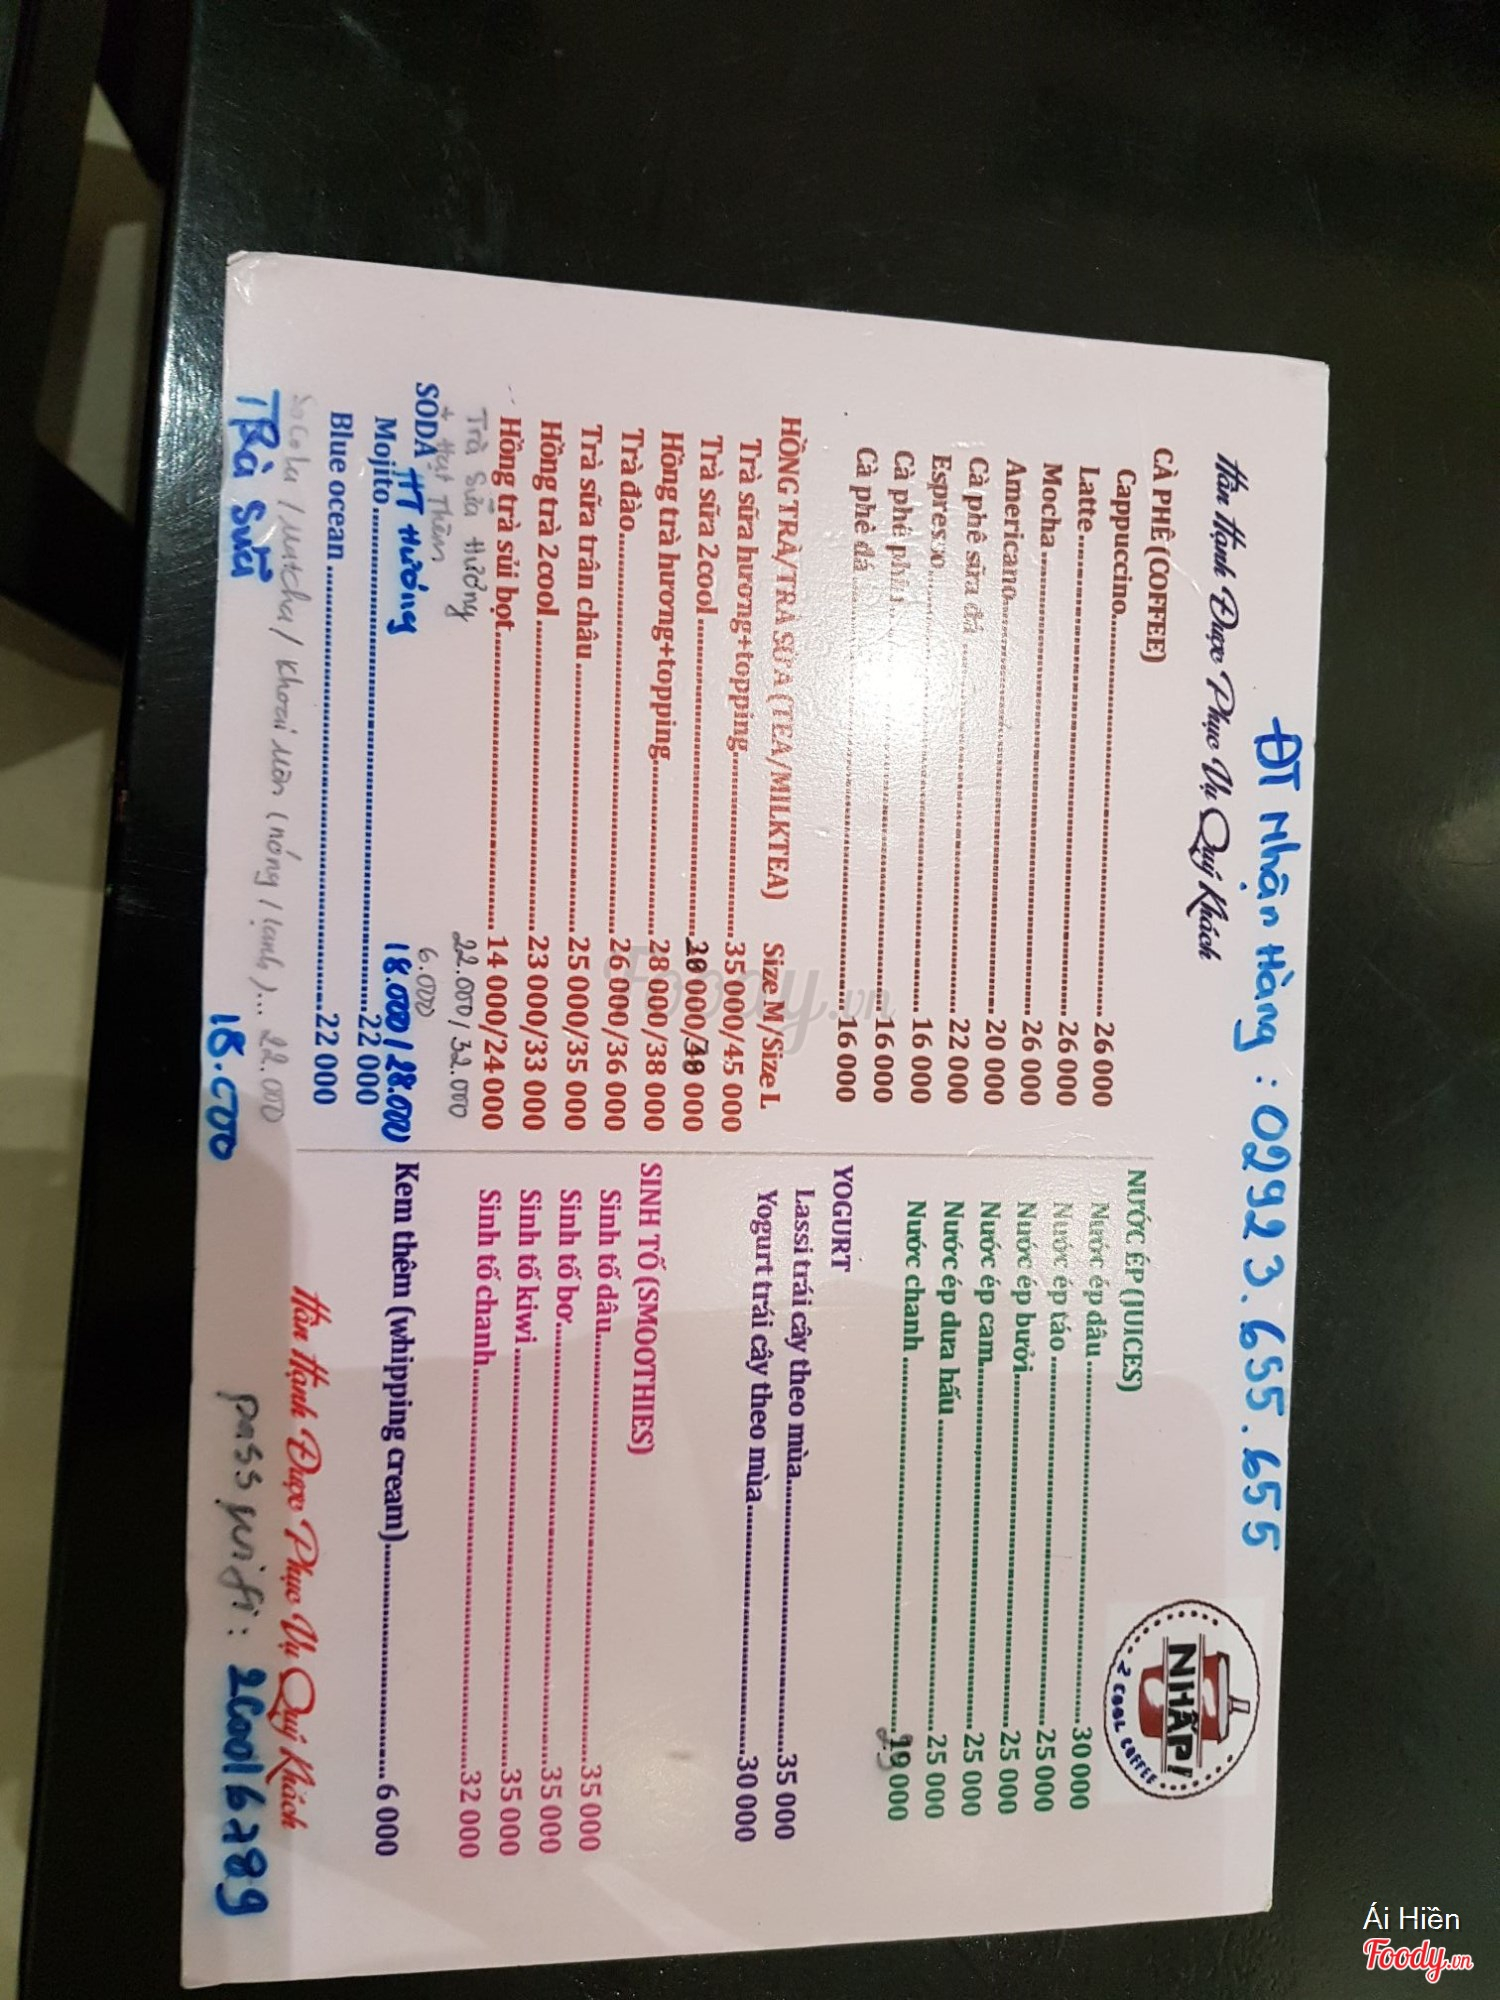 ĐT Nhận Hàng : 02923.655.655
Hân Hạnh Được Phục Vụ Quý Khách
NHẤP!
2 COOL COFFEE
CÀ PHÊ (COFFEE)
Cappuccino 26 000
Latte 26 000
Mocha 26 000
Americano 20 000
Cà phê sữa đá 22 000
Espresso 16 000
Cà phê phin 16 000
Cà phê đá 16 000
HỒNG TRÀ/TRÀ SỮA (TEA/MILKTEA) Size M/Size L
Trà sữa hương+topping 35 000/45 000
Trà sữa 2cool 000/38 000
Hồng trà hương+topping 28 000/38 000
Trà đào 26 000/36 000
Trà sữa trân châu 25 000/35 000
Hồng trà 2cool 23 000/33 000
Hồng trà sủi bọt 14 000/24 000
Trà Sữa Hương 22.000/32.000
+ Hạt Thêm 6.000
SODA HT Hương 18.000/28.000
Mojito 22 000
Blue ocean 22 000
Socola / Matcha / Khoai Môn (nóng / lạnh)... 22.000
Trà Sữa 18.000
NƯỚC ÉP (JUICES)
Nước ép dâu 30 000
Nước ép táo 25 000
Nước ép bưởi 25 000
Nước ép cam 25 000
Nước ép dưa hấu 25 000
Nước chanh 19 000
YOGURT
Lassi trái cây theo mùa 35 000
Yogurt trái cây theo mùa 30 000
SINH TỐ (SMOOTHIES)
Sinh tố dâu 35 000
Sinh tố bơ 35 000
Sinh tố kiwi 35 000
Sinh tố chanh 32 000
Kem thêm (whipping cream) 6 000
Hân Hạnh Được Phục Vụ Quý Khách
pass wifi : 2cool6789
Foody.vn
Ái Hiền
Foody.vn